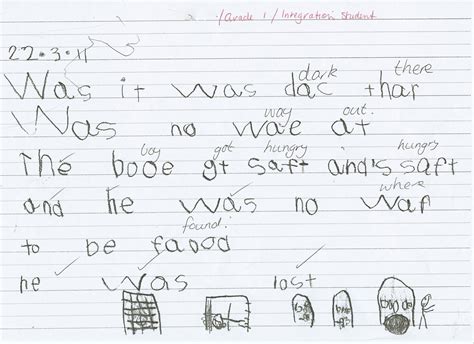 /Grade 1 / Integration Student
22.3.11
dark there
Was it was dac thar
way out.
Was no wae at
boy got hungry hungry
The booe gt saft and's saft
where
and he was no war
found.
to be fanod
he was lost